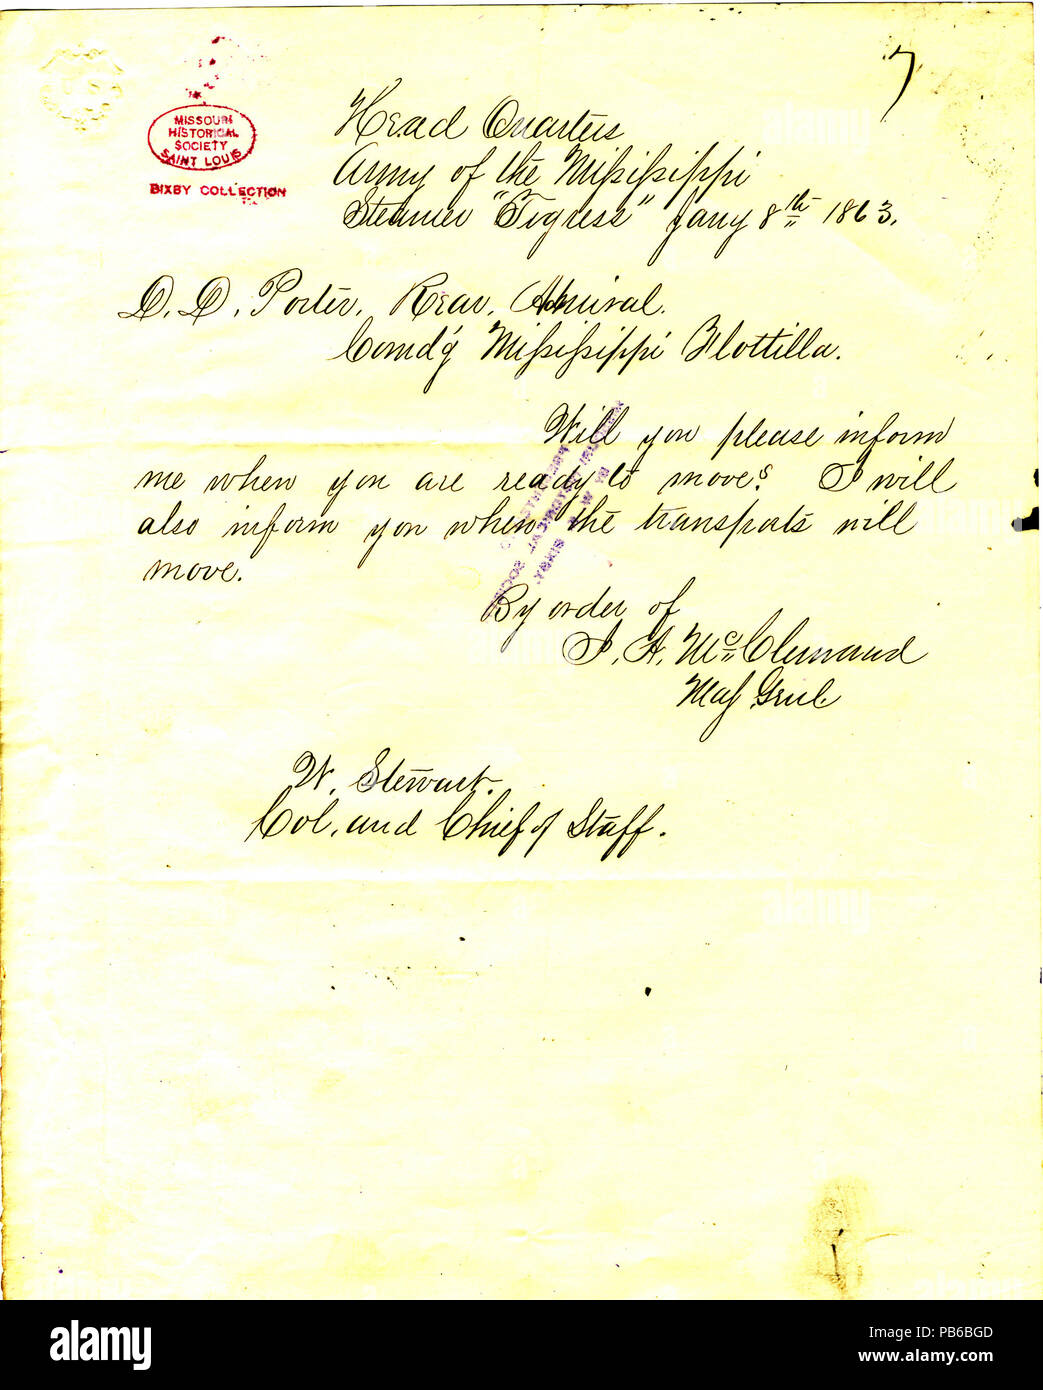 7
MISSOURI
HISTORICAL
SOCIETY
SAINT LOUIS
BIXBY COLLECTION
Head Quarters
Army of the Mississippi
Steamer "Tigress" Jany 8th 1863.
D. D. Porter, Rear, Admiral.
Comd'g Mississippi Flotilla.
Will you please inform
me when you are ready to move? I will
also inform you when the transports will
move.
By order of
J. A. McClernand
Maj Genl.
W. Stewart.
Col, and Chief of Staff.
alamy
alamy
Image ID: PB6BGD
www.alamy.com